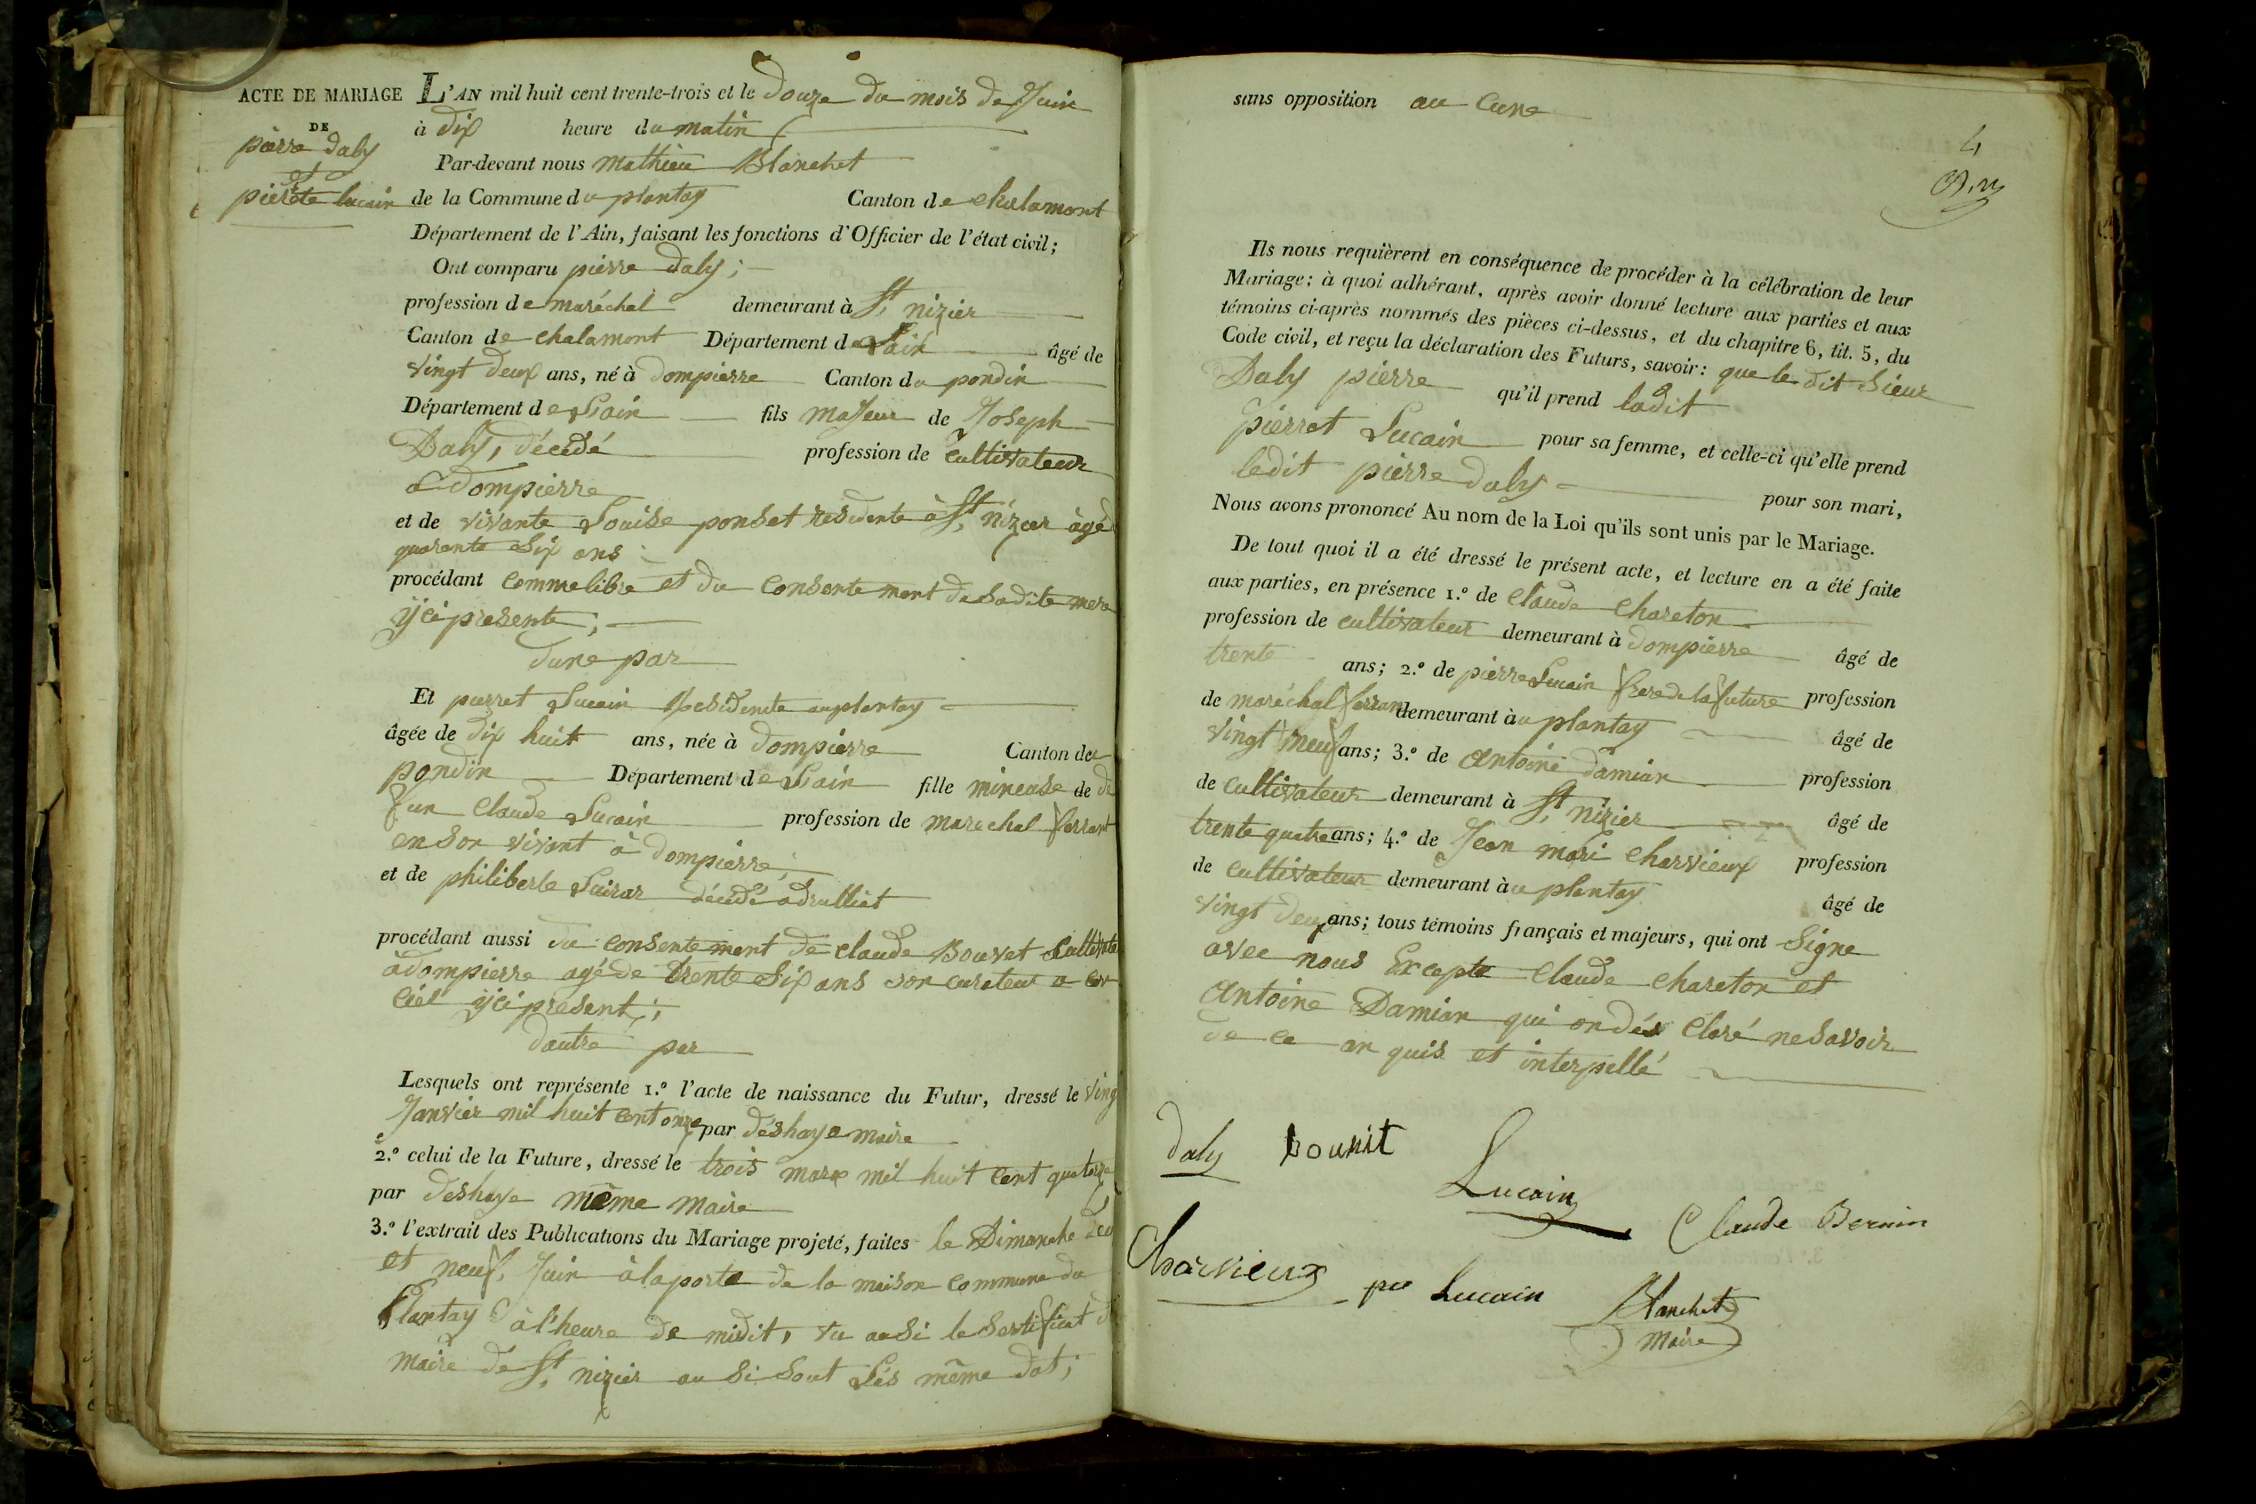 ACTE DE MARIAGE
DE
pierre Daly
et
pierete lucain
L'AN mil huit cent trente-trois et le Douze du mois de Juin
à dix heure du matin
Par-devant nous mathieu Blanchet
de la Commune du plantay Canton de chalamont
Département de l'Ain, faisant les fonctions d'Officier de l'état civil;
Ont comparu pierre Daly;
profession de maréchal demeurant à St. nizier
Canton de chalamont Département de Lain âgé de
vingt deux ans, né à Dompierre Canton du pondin
Département de Lain fils majeur de Joseph
Daly, décédé profession de cultivateur
a Dompierre
et de vivante Louise ponset residente à St. nizier âgé
quarante Six ans
procédant comme libre et du consentement de sadite mere
ÿci presente;
dune par
Et pierret Lucain Residente au plantay
âgée de dix huit ans, née à Dompierre Canton du
pondin Département de Lain fille mineuse de
fun Claude Lucain profession de marechal ferrant
en son vivant à Dompierre;
et de philiberte décédé a drulliat
procédant aussi du consentement de Claude Bouvet
à Dompierre agé de trente Six ans son curateur a
ciel ÿci present;
dautre par
Lesquels ont représenté 1.º l'acte de naissance du Futur, dressé le ving
Janvier mil huit cent onze par déshaye maire
2.º celui de la Future, dressé le trois marx mil huit cent quatorze
par deshaye même maire
3.º l'extrait des Publications du Mariage projeté, faites le Dimanche deu
et neuf, Juin à la porte de la maison commune du
Plantay à l'heure de midit, vu ausi le sertificat
maire de St. nizier au si sout Les même dat;
sans opposition au cune
4
Ils nous requièrent en conséquence de procéder à la célébration de leur
Mariage: à quoi adhérant, après avoir donné lecture aux parties et aux
témoins ci-après nommés des pièces ci-dessus, et du chapitre 6, tit. 5, du
Code civil, et reçu la déclaration des Futurs, savoir: que le dit Sieur
Daly pierre qu'il prend ladit
pierret Lucain pour sa femme, et celle-ci qu'elle prend
ledit pierre daly pour son mari,
Nous avons prononcé Au nom de la Loi qu'ils sont unis par le Mariage.
De tout quoi il a été dressé le présent acte, et lecture en a été faite
aux parties, en présence 1.º de Claude Chareton
profession de cultivateur demeurant à Dompierre âgé de
trente ans; 2.º de pierre Lucain frere de la future profession
de maréchal ferran demeurant àu plantay âgé de
vingt neuf ans; 3.º de Antoine Damian profession
de cultivateur demeurant à St. nizier âgé de
trente quatre ans; 4.º de Jean mari Charvieux profession
de cultivateur demeurant àu plantay âgé de
vingt deux ans; tous témoins français et majeurs, qui ont Signe
avec nous Excepte Claude Chareton et
Antoine Damian qui on dés claré ne savoir
de ce an quis et interpellé
daly bounit
Lucain
Claude Bernin
Charvieux
pre Lucain
Blanchet
maire